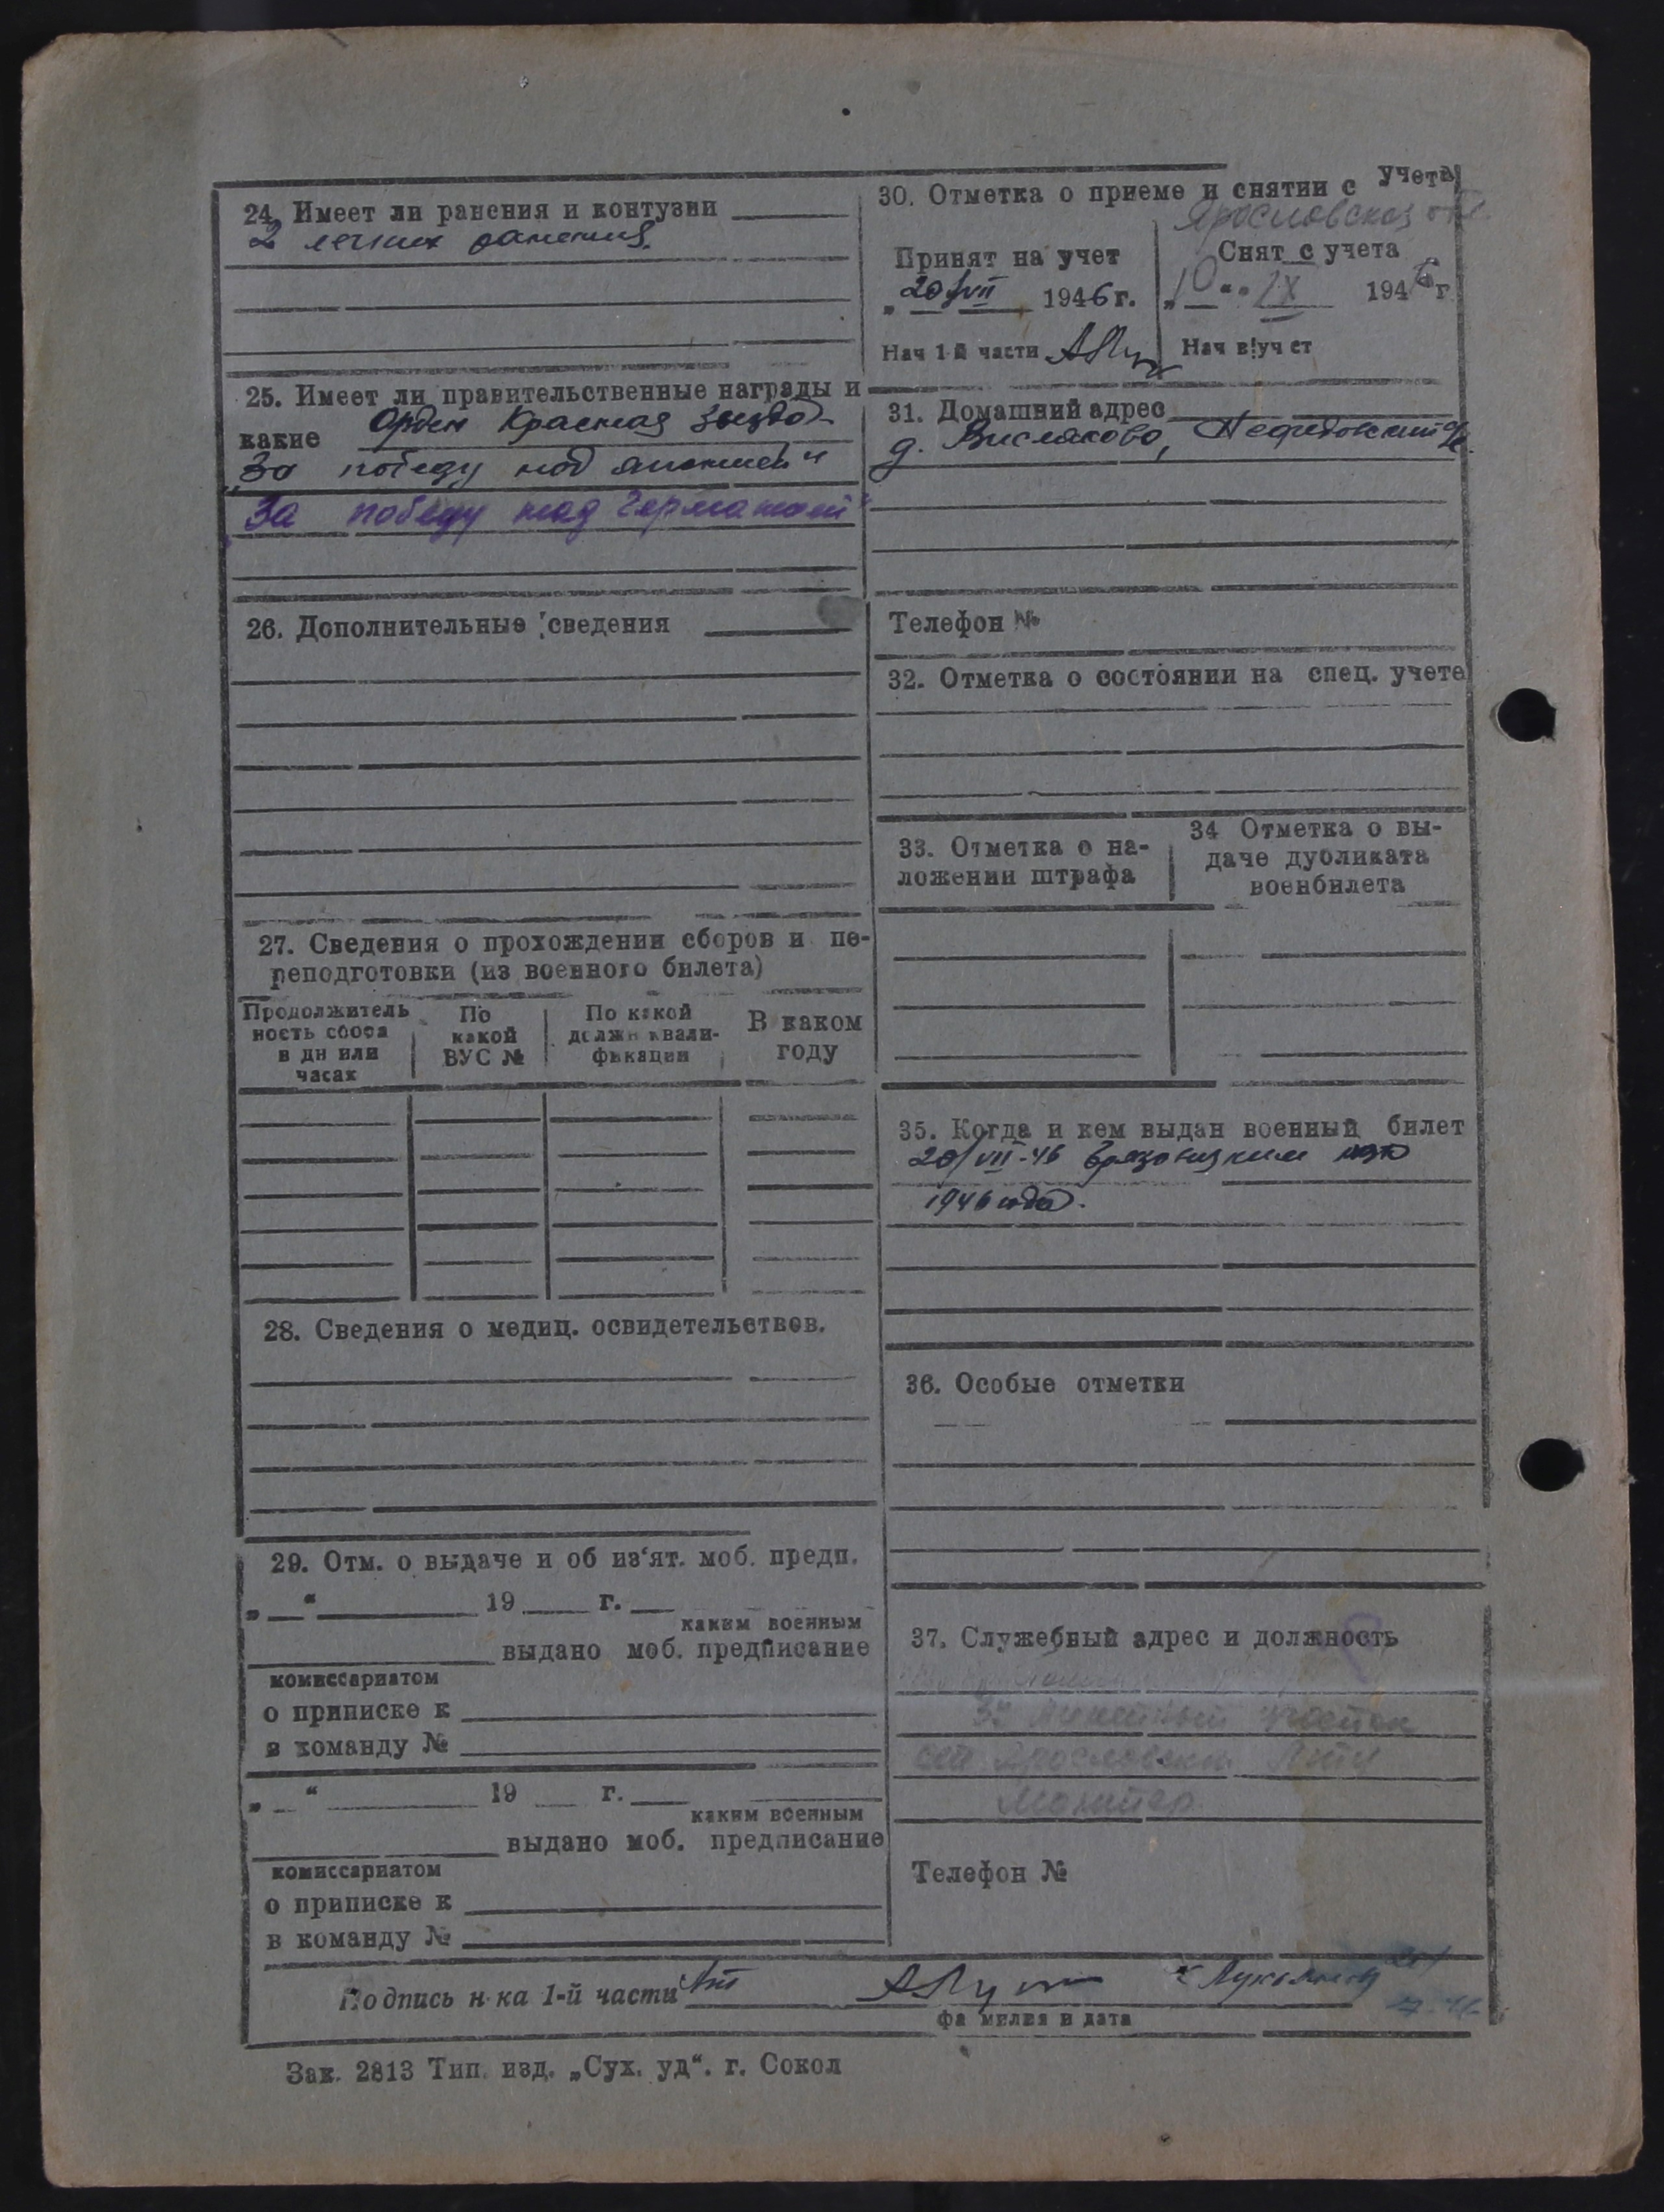 24. Имеет ли ранения и контузии
2 легких ранения.
25. Имеет ли правительственные награды и
какие Орден Красная звезда
„За победу над Японией"
„За победу над Германией"
26. Дополнительные сведения
27. Сведения о прохождении сборов и пе-
реподготовки (из военного билета)
Продолжитель
ность сбора
в дн или
часах
По
какой
ВУС №
По какой
должн квали-
фикации
В каком
году
28. Сведения о медиц. освидетельствов.
29. Отм. о выдаче и об из‘ят. моб. предп.
„ “ 19 г.
каким военным
выдано моб. предписание
комиссариатом
о приписке к
в команду №
„ “ 19 г.
каким военным
выдано моб. предписание
комиссариатом
о приписке к
в команду №
30. Отметка о приеме и снятии с учета
Ярославская обл.
Принят на учет
„20/VII 1946 г.
Нач 1й части
Снят с учета
„10“ IX 1946 г
Нач в!уч ст
31. Домашний адрес
д. Висляково,
Телефон №
32. Отметка о состоянии на спец. учете
33. Отметка о на-
ложении штрафа
34 Отметка о вы-
даче дубликата
военбилета
35. Когда и кем выдан военный билет
20/VII-46
1946 года.
36. Особые отметки
37. Служебный адрес и должность
участок
Телефон №
Подпись н-ка 1-й части
фамилия и дата
Зак. 2813 Тип. изд. „Сух. уд“. г. Сокол